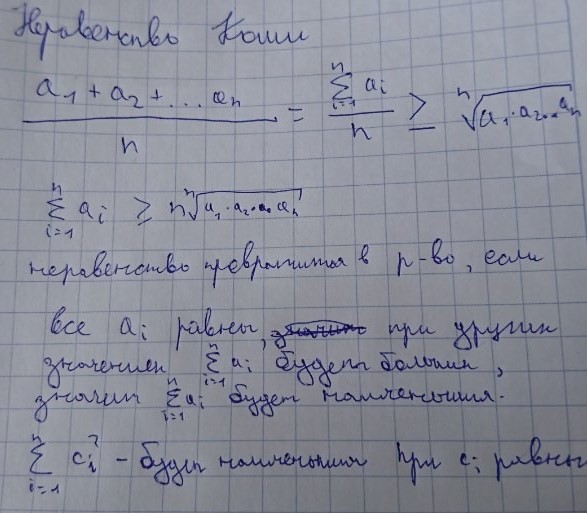 Неравенство Коши
a₁ + a₂ + ... aₙ / n = ∑ᵢ₌₁ⁿ aᵢ / n ≥ ⁿ√(a₁·a₂...aₙ)
∑ᵢ₌₁ⁿ aᵢ ≥ n ⁿ√(a₁·a₂·...aₙ)
неравенство превратится в р-во, если
все aᵢ равны, при других
значениях ∑ᵢ₌₁ⁿ aᵢ будет большим,
значит ∑ᵢ₌₁ⁿ aᵢ будет наименьшим.
∑ᵢ₌₁ⁿ cᵢ² - будет наименьшим при cᵢ равны